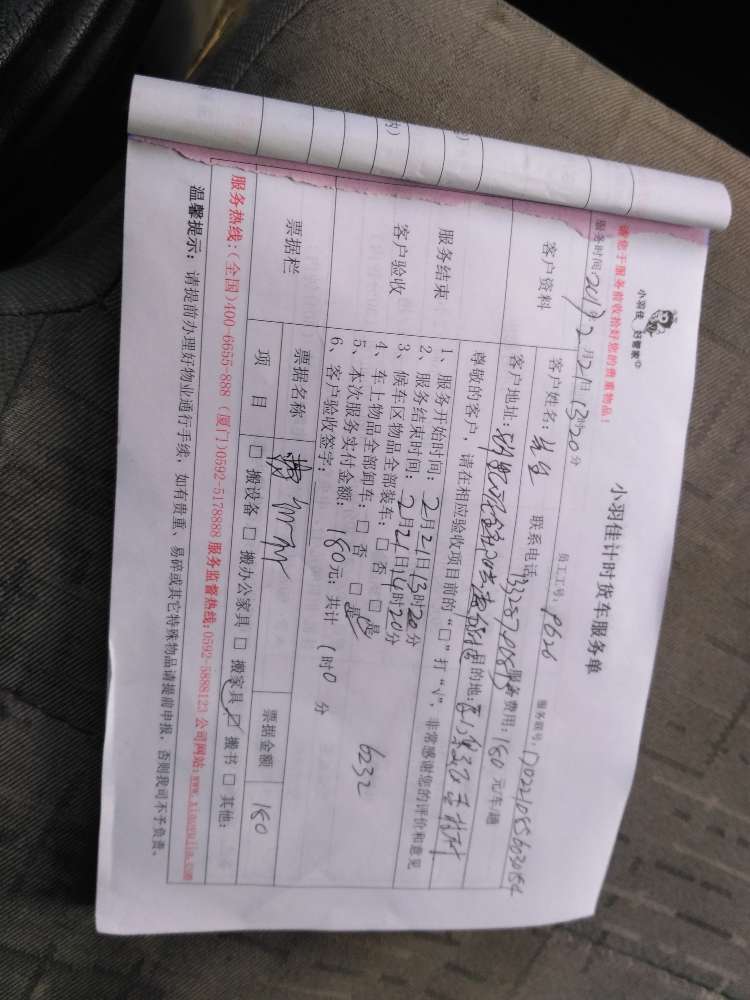 小羽佳 好管家
小羽佳计时货车服务单
请您于服务前收拾好您的贵重物品!
员工工号: P626
服务联号:
服务时间: 2019 2月21日13时20分
客户资料
客户姓名: 先生 联系电话 服务费用: 180元/车/趟
客户地址: 目的地:
尊敬的客户,请在相应验收项目前的“□”打“√”,非常感谢您的评价和意见
服务结束
客户验收
1、服务开始时间: 2月21日13时20分
2、服务结束时间: 2月21日14时20分
3、候车区物品全部装车: □ 否 □ 是
4、车上物品全部卸车: □ 否 □ 是
5、本次服务实付金额: 180元; 共计 1时0分
6、客户验收签字: 6232
票据栏
票据名称 票据金额 180
项目 □ 搬设备 □ 搬办公家具 □ 搬家具 ☑ 搬书 □ 其他:
服务热线:(全国)400-6655-888 (厦门)0592-5178888 服务监督热线:0592-5888123 公司网站:www.xiaoyujia.com
温馨提示: 请提前办理好物业通行手续,如有贵重、易碎或其它特殊物品请提前申报,否则我司不予负责。